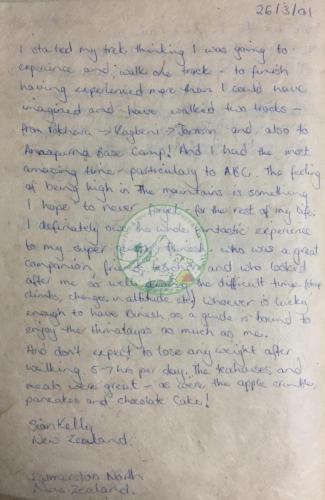 26/3/01
I started my trek thinking I was going to
experience and walk one track - to finish
having experienced more than I could have
imagined and have walked two tracks -
from Pokhara → Kagbeni → Jomsom and also to
Annapurna Base Camp! And I had the most
amazing time - particulary to ABC. The feeling
of being high in the mountains is something
I hope to never forget - for the rest of my life.
I definately owe the whole fantastic experience
to my super - who was a great
companion, and who looked
after me so well during the difficult times (steep
climbs, changes in altitude etc) Whoever is lucky
enough to have as a guide is bound to
enjoy the Himalayas as much as me.
And don't expect to lose any weight after
walking 5-7 hrs per day. The teahouses and
meals were great - as were the apple crumble,
pancakes and chocolate cake!
Sian Kelly
New Zealand.
Palmerston North
New Zealand.